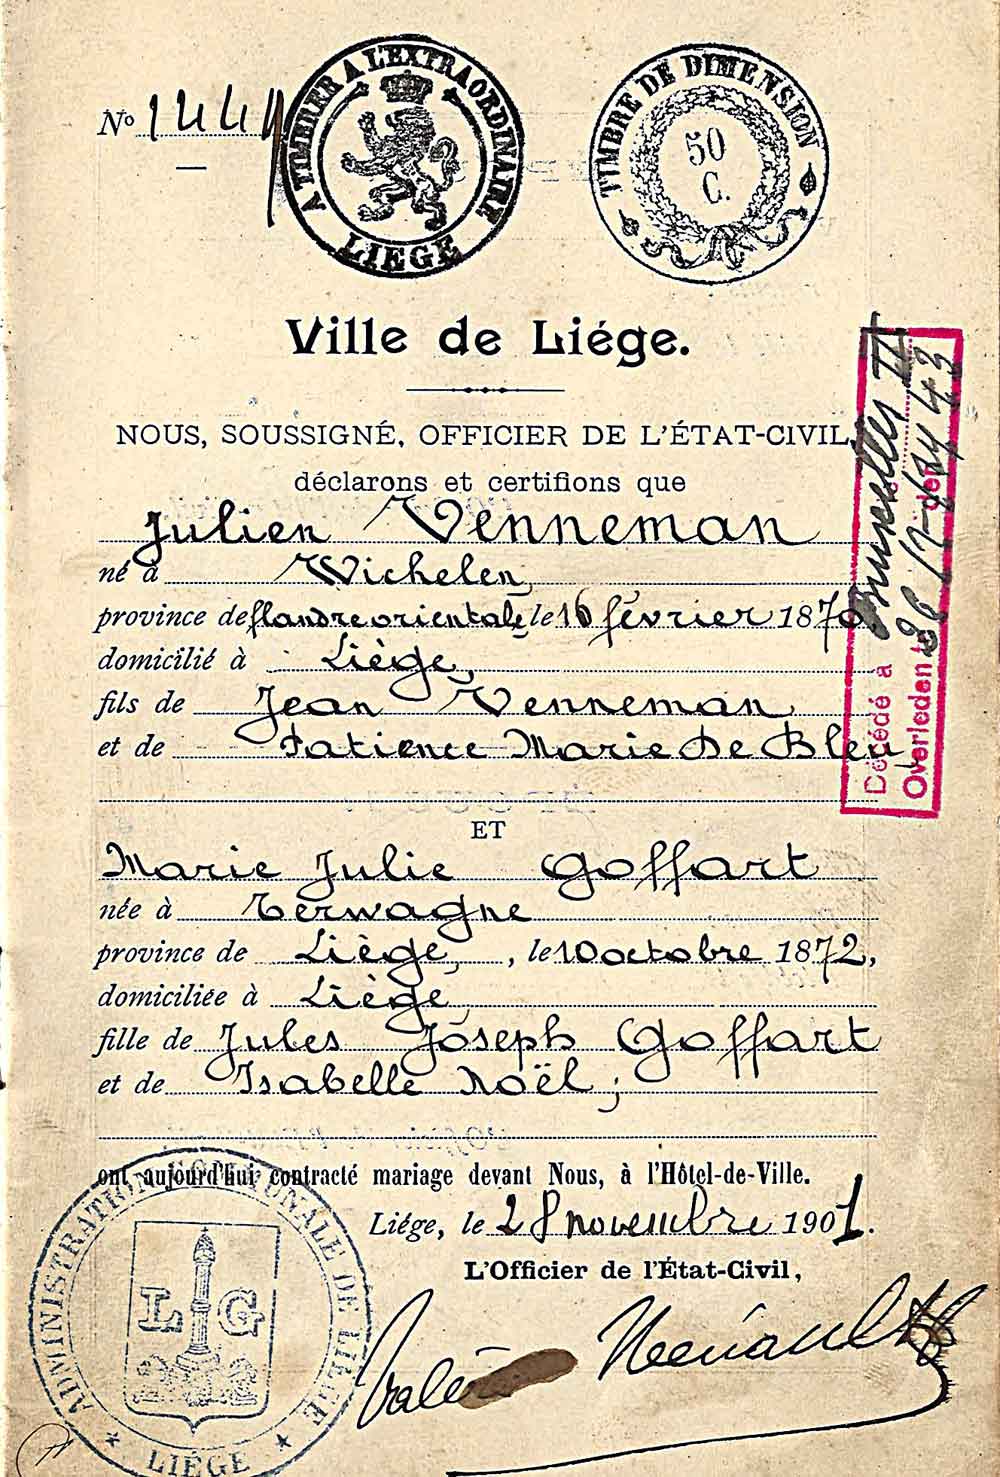 No 1441
A TIMBRER A L'EXTRAORDINAIRE
LIEGE
TIMBRE DE DIMENSION
50
C.
Ville de Liége.
NOUS, SOUSSIGNÉ, OFFICIER DE L'ÉTAT-CIVIL,
déclarons et certifions que
Julien Venneman
né à Wichelen,
province de flandre orientale, le 16 février 1870
domicilié à Liège,
fils de Jean Venneman
et de Patience Marie De Bleu,
Décédé a Bruxelles II
Overleden te den 43
ET
Marie Julie Goffart
née à Terwagne
province de Liège, , le 10 octobre 1872,
domiciliée à Liège,
fille de Jules Joseph Goffart
et de Isabelle Noël;
ont aujourd'hui contracté mariage devant Nous, à l'Hôtel-de-Ville.
Liége, le 28 novembre 1901.
L'Officier de l'État-Civil,
ADMINISTRATION COMMUNALE DE LIÈGE
L G
LIÉGE